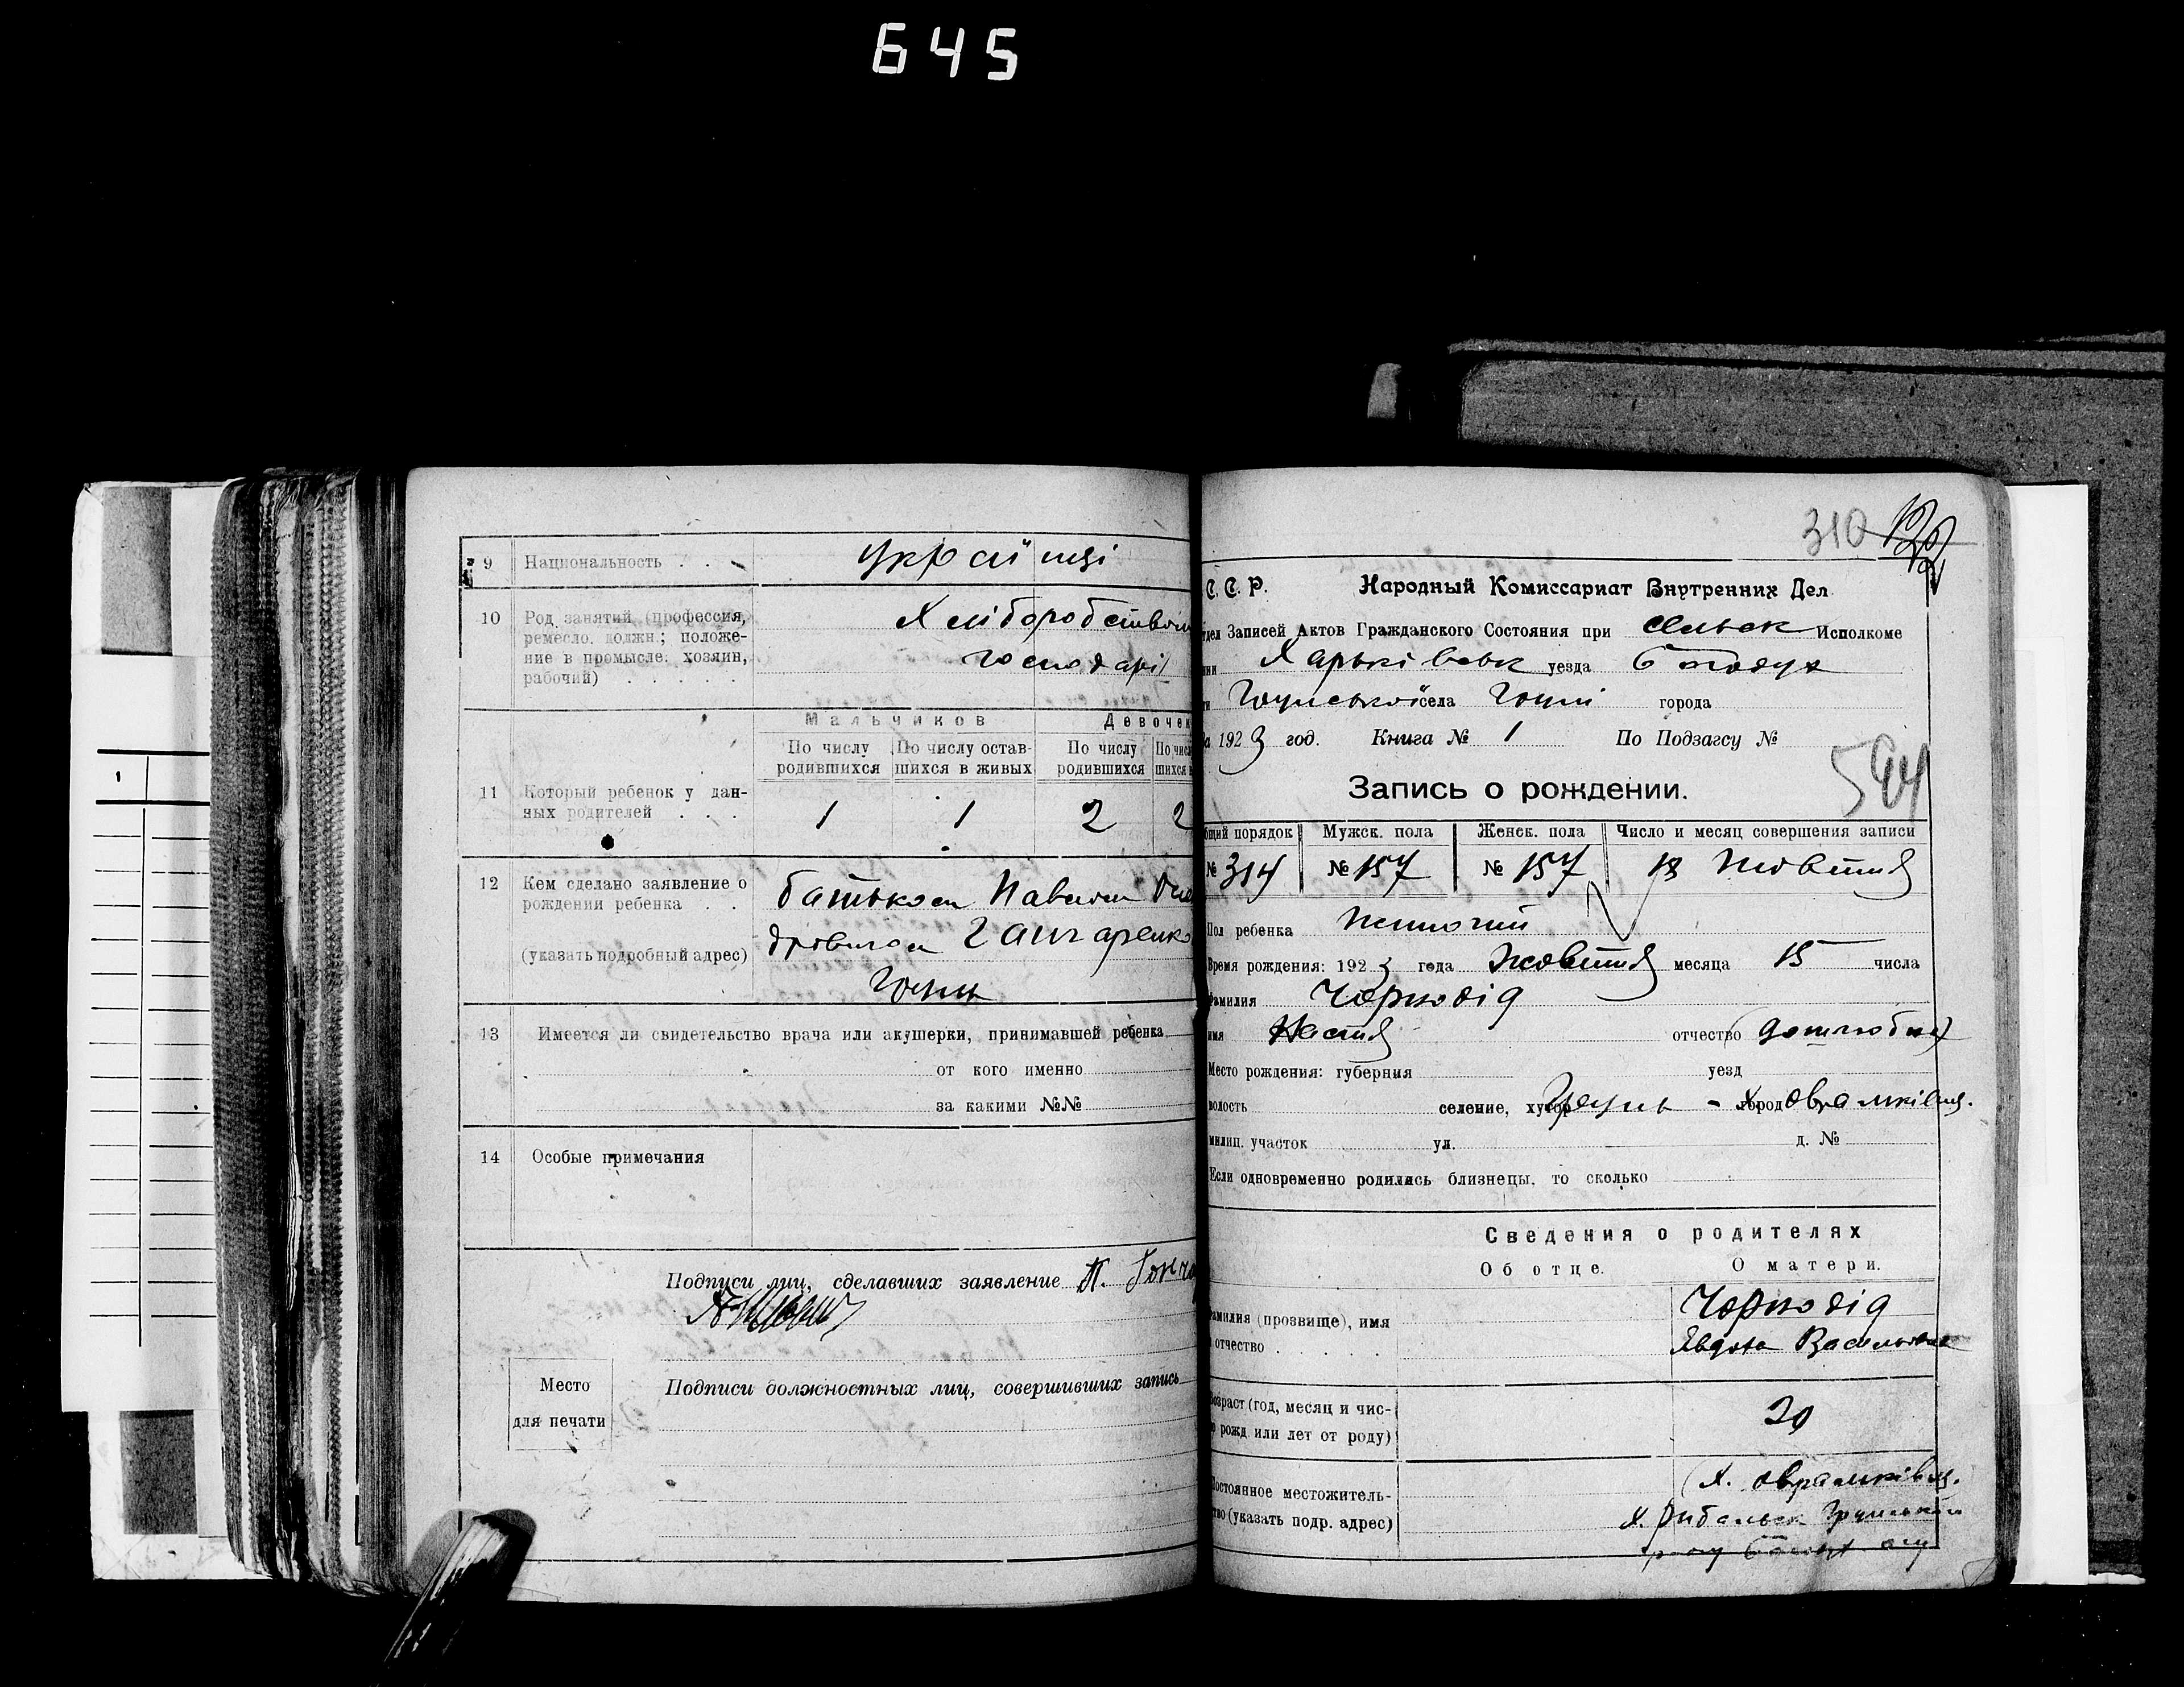 645
9 Национальность . . українці
10 Род занятий (профессия, Хліборобством
ремесло, должн.; положе-
ние в промысле, хозяин, господарі
рабочий) . . . . .
Мальчиков Девочек
По числу По числу остав- По числу По числ
родившихся шихся в живых родившихся шихся в
11 Который ребенок у дан-
ных родителей . . . 1 1 2 2
12 Кем сделано заявление о батьком Павлом
рождении ребенка . .
(указать подробный адрес)
13 Имеется ли свидетельство врача или акушерки, принимавшей ребенка
от кого именно
за какими №№
14 Особые примечания
Подписи лиц, сделавших заявление П.
Место Подписи должностных лиц, совершивших запись
для печати
310
С. С. Р. Народный Комиссариат Внутренних Дел
тдел Записей Актов Гражданского Состояния при сельск Исполкоме
нии Харківськ уезда Богодух
села города
а 1923 год. Книга № 1 По Подзагсу №
594
Запись о рождении.
бщий порядок Мужск. пола Женск. пола Число и месяц совершения записи
№ 314 № 157 № 157 18 Жовтня
Пол ребенка жиночий
Время рождения: 1923 года Жовтня месяца 15 числа
Фамилия Чорнодід
имя Настя отчество
Место рождения: губерния уезд
волость селение, хутор город
милиц. участок ул. д. №
Если одновременно родились близнецы, то сколько
Сведения о родителях
Об отце. О матери.
Фамилия (прозвище), имя Чорнодід
отчество . . . . . Явдоха Васильовна
Возраст (год, месяц и чис- 20
о рожд или лет от роду)
Постоянное местожитель- Х.
тво (указать подр. адрес) Х.